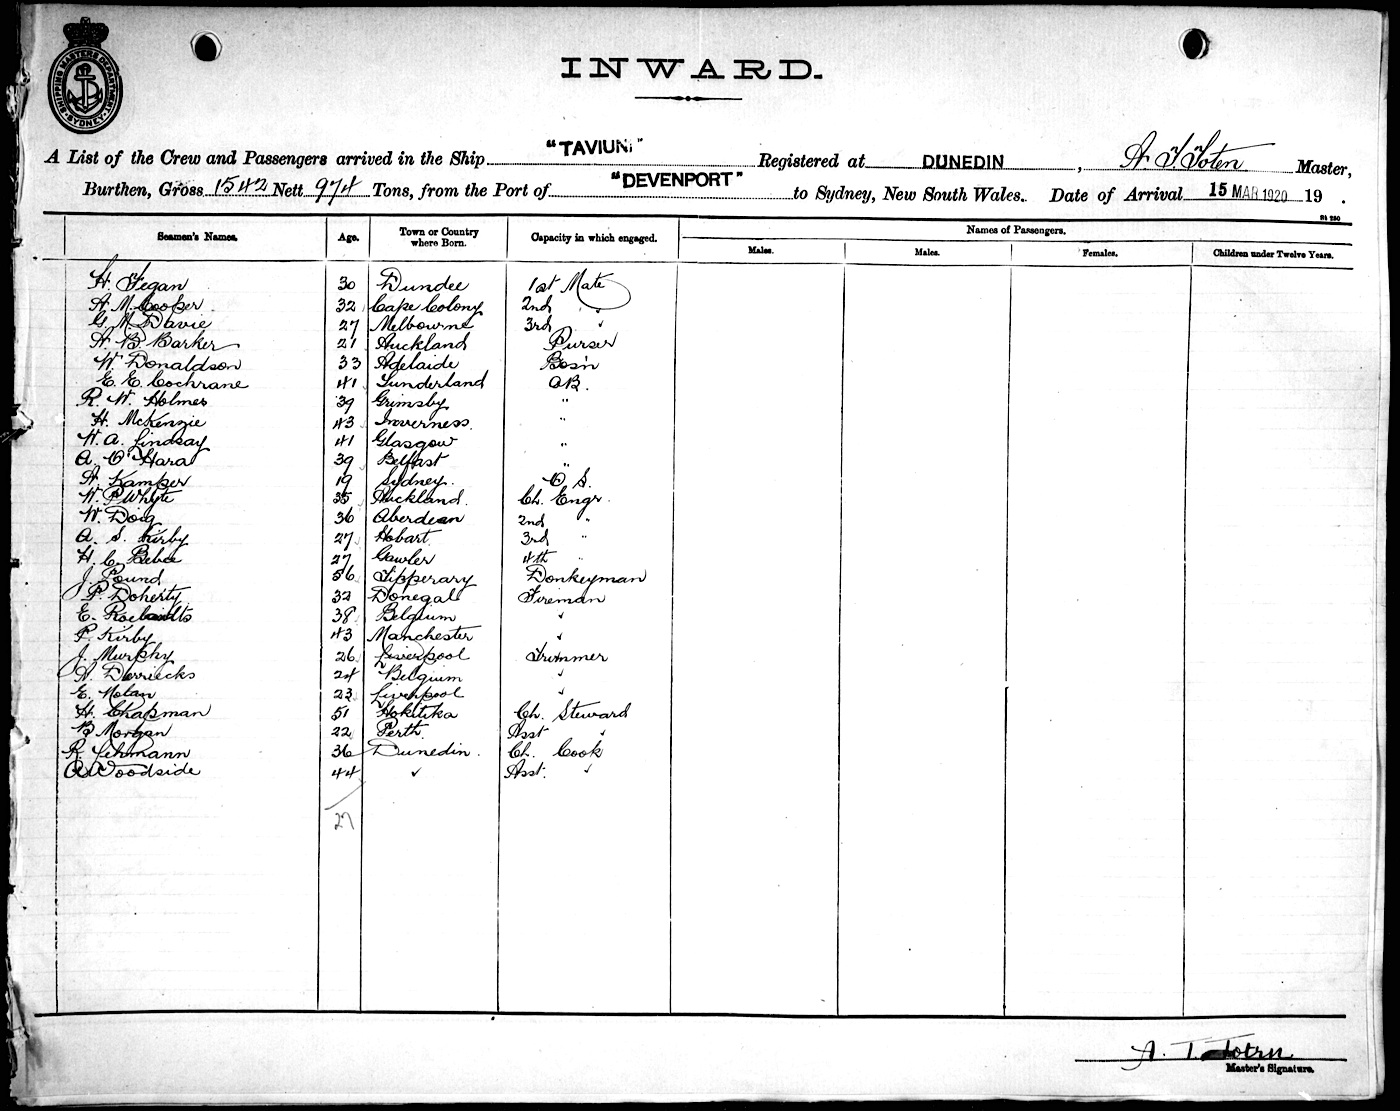 SHIPPING MASTERS DEPARTMENT SYDNEY
INWARD.
A List of the Crew and Passengers arrived in the Ship "TAVIUNI" Registered at DUNEDIN , A T Toten Master,
Burthen, Gross 1542 Nett 974 Tons, from the Port of "DEVENPORT" to Sydney, New South Wales. Date of Arrival 15 MAR 1920 19 .
Seamen's Names. Age. Town or Country where Born. Capacity in which engaged. Names of Passengers.
Males. Males. Females. Children under Twelve Years.
H. Fegan 30 Dundee 1st Mate
A. M. Cooper 32 Cape Colony 2nd "
G. M. Davie 27 Melbourne 3rd "
A. B. Barker 21 Auckland Purser
W. Donaldson 33 Adelaide Bos'n
E. E. Cochrane 41 Sunderland AB.
R. W. Holmes 39 Grimsby "
H. McKenzie 43 Inverness "
W. A. Lindsay 41 Glasgow "
A. O'Hara 39 Belfast "
A. Kamper 19 Sydney. O S.
W. P Whyte 35 Auckland. Ch. Engr.
W. Doig 36 Aberdeen 2nd "
A. S. Kirby 27 Hobart 3rd "
H. C. 27 Gawler 4th "
J. Pound 56 Tipperary Donkeyman
P. Doherty 32 Donegal Fireman
E. 38 Belgium "
P. Kirby 43 Manchester "
J. Murphy 26 Liverpool Trimmer
A. Derriecks 24 Belgium "
E. Nolan 23 Liverpool "
H. Chapman 51 Hokitika Ch. Steward
B Morgan 22 Perth. Asst "
R. Lehmann 36 Dunedin. Ch. Cook
A. Woodside 44 " Asst. "
27
A. T. Toten
Master's Signature.